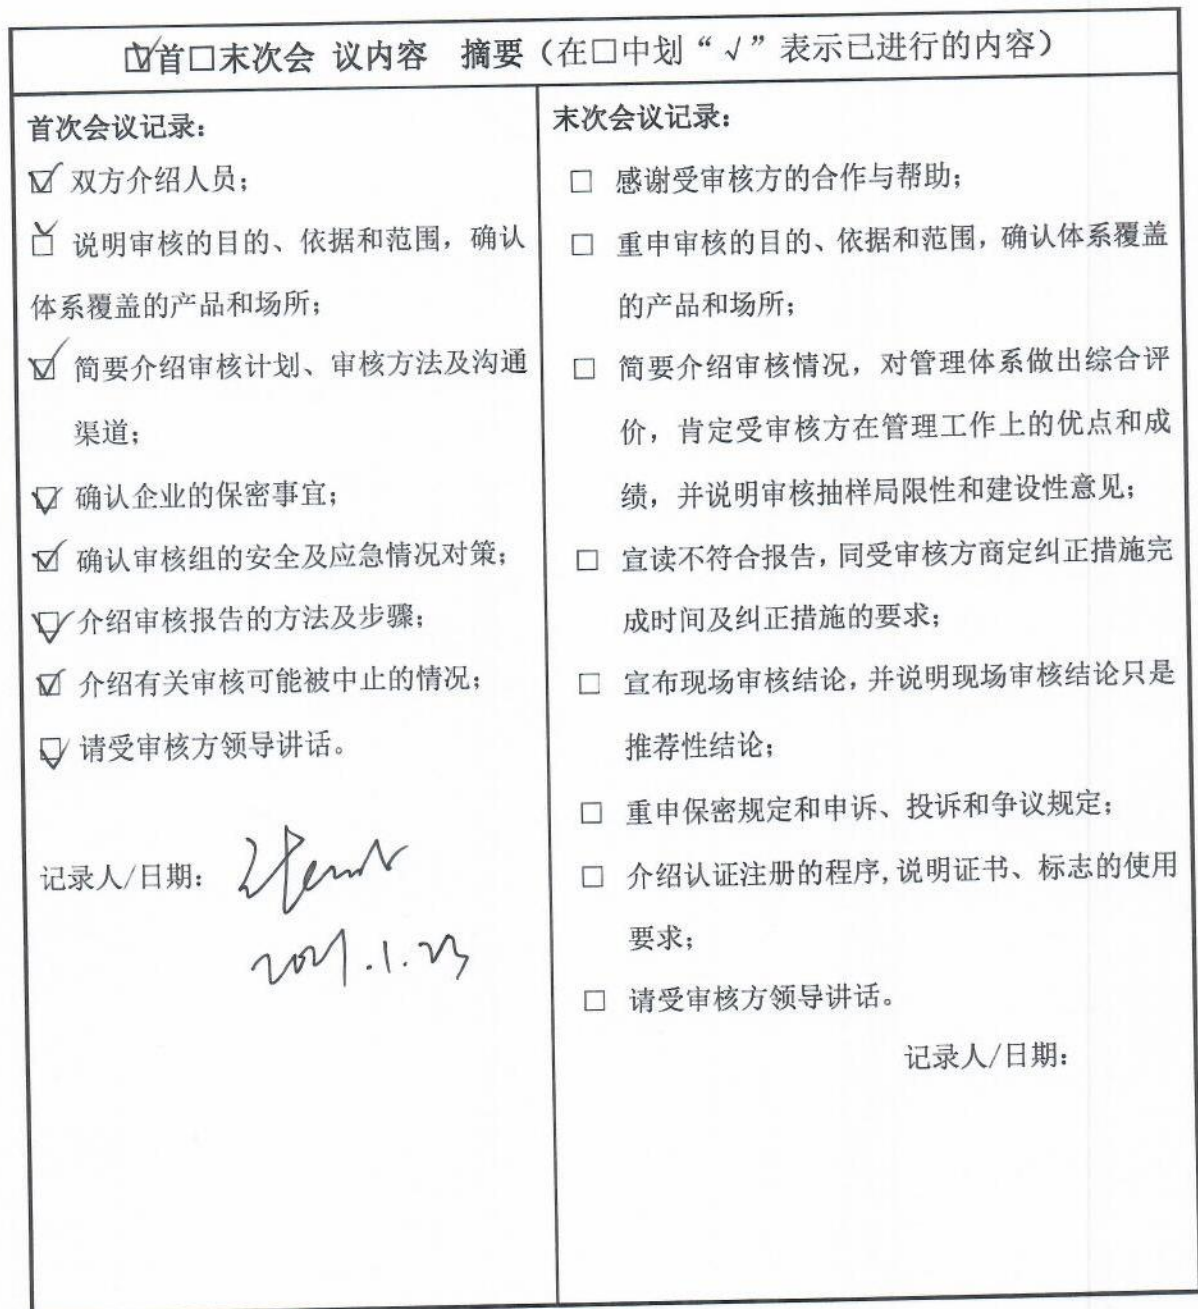 ☑首□末次会 议内容 摘要（在□中划“√”表示已进行的内容）
首次会议记录：
☑ 双方介绍人员；
☑ 说明审核的目的、依据和范围，确认
体系覆盖的产品和场所；
☑ 简要介绍审核计划、审核方法及沟通
渠道；
☑ 确认企业的保密事宜；
☑ 确认审核组的安全及应急情况对策；
☑ 介绍审核报告的方法及步骤；
☑ 介绍有关审核可能被中止的情况；
☑ 请受审核方领导讲话。
记录人/日期：
末次会议记录：
□ 感谢受审核方的合作与帮助；
□ 重申审核的目的、依据和范围，确认体系覆盖
的产品和场所；
□ 简要介绍审核情况，对管理体系做出综合评
价，肯定受审核方在管理工作上的优点和成
绩，并说明审核抽样局限性和建设性意见；
□ 宣读不符合报告，同受审核方商定纠正措施完
成时间及纠正措施的要求；
□ 宣布现场审核结论，并说明现场审核结论只是
推荐性结论；
□ 重申保密规定和申诉、投诉和争议规定；
□ 介绍认证注册的程序，说明证书、标志的使用
要求；
□ 请受审核方领导讲话。
记录人/日期：